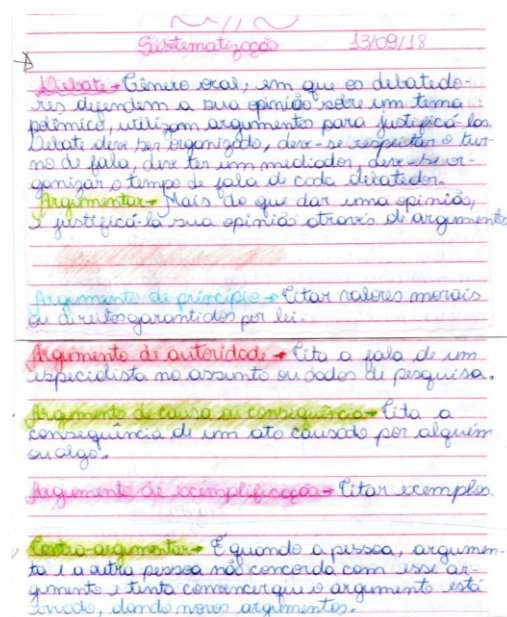 Sistematização 13/09/18
Debate → Gênero oral, em que os debatedo-
res defendem a sua opinião sobre um tema
polêmico, utilizam argumentos para justificá-los.
Debate deve ser organizado, deve-se respeitar o tur-
no de fala, deve ter um mediador, deve-se or-
ganizar o tempo de fala de cada debatedor.
Argumentar → Mais do que dar uma opinião,
é justificá-la sua opinião através de argumentos
Argumento de princípio → Citar valores morais
ou direitos garantidos por lei.
Argumento de autoridade → Cita a fala de um
especialista no assunto ou dados de pesquisa.
Argumento de causa ou consequência → Cita a
consequência de um ato causado por alguém
ou algo.
Argumento de exemplificação → Citar exemplos
Contra-argumentar → É quando a pessoa, argumen-
ta e a outra pessoa não concorda com esse ar-
gumento e tenta convencer que o argumento está
errado, dando novos argumentos.